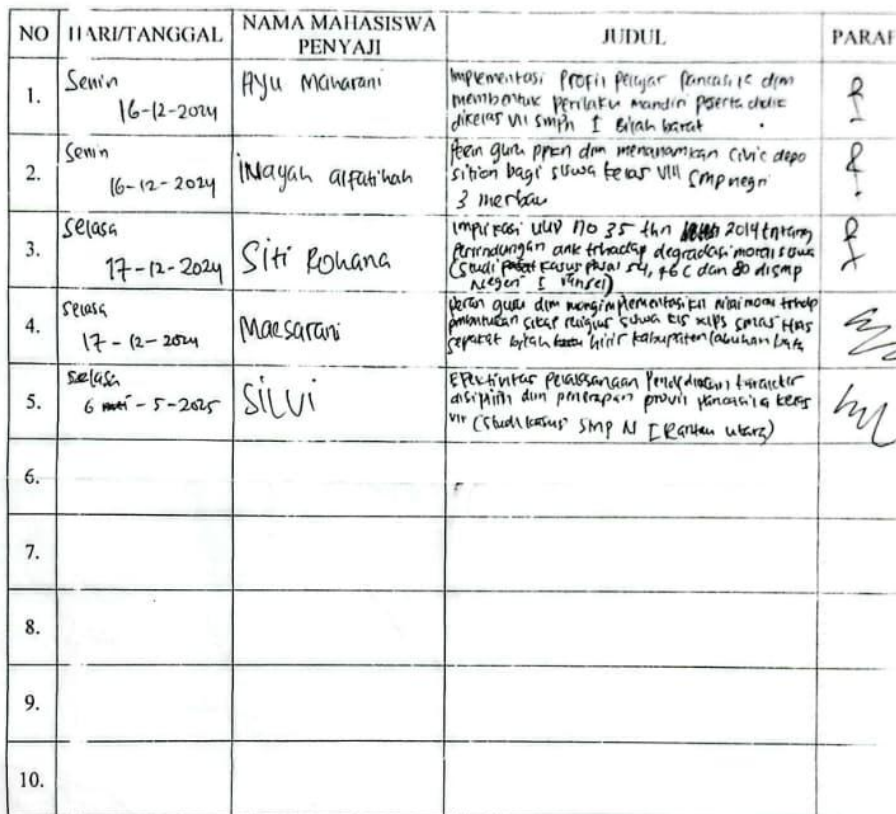 NO HARI/TANGGAL NAMA MAHASISWA PENYAJI JUDUL PARAF
1. Senin
16-12-2024
Ayu Maharani
Implementasi Profil Pelajar Pancasila dlm
membentuk perilaku mandiri peserta didik
dikelas VII smpn 1 Bilah barat
2. Senin
16-12-2024
Inayah alfatihah
Peran guru ppkn dlm menanamkan civic depo
sition bagi siswa kelas VIII smp negri
3 merbau
3. Selasa
17-12-2024
Siti Rohana
Implikasi UUD no 35 thn 2014 tntang
Perlindungan ank trhadap degradasi moral siswa
(Studi kasus pasal 54, 76 C dan 80 di smp
Negeri 1
4. Selasa
17-12-2024
Maesarani
peran guru dlm mengimplementasikn nilai moral trhdp
sikap religius siswa kls smas
sepakat bilah hilir kabupaten labuhan batu
5. Selasa
6 - 5 - 2025
SILVI
Efektivitas pelaksanaan Pendidikan karakter
disiplin dlm penerapan provil pancasila kelas
VII (Studi kasus SMP N 1 Rantau utara)
6.
7.
8.
9.
10.